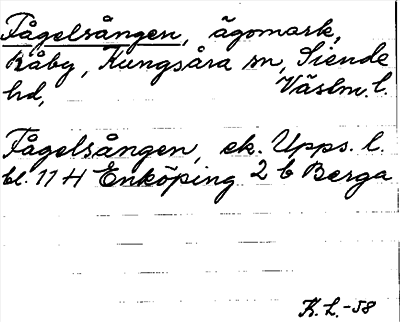 Fågelsången, ägomark,
Råby, Kungsåra sn, Siende
hd, Västm. l.
Fågelsången, ek. Upps. l.
bl. 11 H Enköping 2 b Berga
K. L. -58